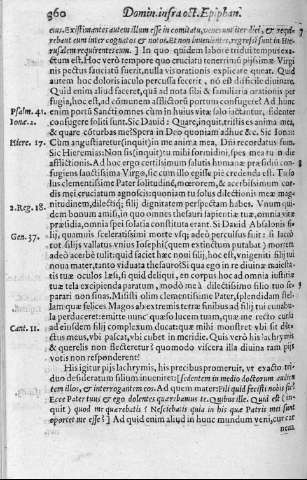 360 Domin. infra oct. Epiphan.
eius, Existimantes autem illum esse in comitatu, venerunt iter diei, & requi-
rebant eum inter cognatos & notos, Et non invenientes, regressi sunt in Hie-
rusalem requirentes eum. ] In quo quidem labore triduitempus ex-
actum est. Hoc verò tempore quo cruciatu tenerrimo pijssimæ Virgi
nis pectus sauciū fuerit, nulla visorationis explicare queat. Quid
autem hoc doloris iaculo percussa fecerit, nō est difficile divinare.
Quid enim aliud curæ fuit, quā ad nota & familiaria orationis per-
fugia, hoc est, ad cōmunem afflictorū portum confugere? Ad hunc
Psalm. 41. enim portū Sancti omnes cùm in huius vitæ salo iactantur, fidenter
Iona. 2. confugere soliti sunt. Sic David: Quare, inquit, tristis es anima mea,
& quare cōturbas me? Spera in Deo quoniam adhuc &c. Sic Ionas:
Hiere. 17. Cùm angustiaretur (inquit) in me anima mea, Dñi recordatus sum.
Sic Hieremias: Non sis (inquit) tu mihi formidini, spes mea tu in die
afflictionis. Ad hoc ergo certissimum salutis humanæ præsidiū con-
fugiens sactissima Virgo, sic cum illo egisse piè credenda est. Tu so-
lus clementissime Pater solitudinē, mœrorem, & acerbissimum cor-
dis mei cruciatum agnoscis: quoniam tu solus dilectionis meæ mag-
2. Reg. 18. nitudinem, dilectiq; filij dignitatem perspectam habes. Vnum qui-
dem bonum amisi, in quo omnes thesauri sapientiæ tuæ, omnia vitæ
præsidia, omnis spei solatia constituta erant. Si David Absalonis fi-
lij, quamvis sceleratissimi morte vsq; adeò percussus fuit: si Iacob
Gen. 37. tot filijs vallatus vnius Iosephi (quem extinctum putabat) mortem
adeò acerbè tulit: quid faciet hæc noui filij, hoc est, vnigeniti filij tui
noua mater, tanto viduata thesauro? Si qua ego in re divinæ maiesta-
tis tuæ oculos læsi, si quid deliqui, en corpus hoc ad omnia iustitiæ
tuæ tela excipienda paratum, modò me à dilectissimo filio tuo se-
parari non sinas. Misisti olim clementissime Pater, splendidam stel-
lam quæ felices Magos ab extremis terræ finibus ad filij tui cunabu-
la perduceret: emitte nunc quæso lucem tuam, quæ me recto cursu
Cant. 11. ad eiusdem filij complexum ducat: quæ mihi monstret vbi sit dile-
ctus meus, vbi pascat, vbi cubet in meridie. Quis verò his lachrymis
& querelis non flecteretur? quomodo viscera illa divina tam pijs
votis non responderent?
His igitur pijs lachrymis, his precibus promeruit, vt exacto tri-
duo desideratum filium inueniret: [ sedentem in medio doctorum audien-
tem illos, & interrogantem eos. Ad quem mater: Fili quid fecisti nobis sic?
Ecce Pater tuus & ego dolentes quærebamus te. Quibus ille. Quid est (in-
quit) quod me quærebatis? Nesciebatis quia in his quæ Patris mei sunt
oportet me esse? ] Ad quid enim aliud in hunc mundum veni, cur cat
nem